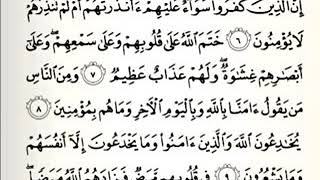 إِنَّ الَّذِينَ كَفَرُوا سَوَاءٌ عَلَيْهِمْ ءَأَنذَرْتَهُمْ أَمْ لَمْ تُنذِرْهُمْ
لَا يُؤْمِنُونَ ٦ خَتَمَ اللَّهُ عَلَىٰ قُلُوبِهِمْ وَعَلَىٰ سَمْعِهِمْ ۖ وَعَلَىٰ
أَبْصَارِهِمْ غِشَاوَةٌ ۖ وَلَهُمْ عَذَابٌ عَظِيمٌ ٧ وَمِنَ النَّاسِ
مَن يَقُولُ ءَامَنَّا بِاللَّهِ وَبِالْيَوْمِ الْآخِرِ وَمَا هُم بِمُؤْمِنِينَ ٨
يُخَادِعُونَ اللَّهَ وَالَّذِينَ ءَامَنُوا وَمَا يَخْدَعُونَ إِلَّا أَنفُسَهُمْ
وَمَا يَشْعُرُونَ ٩ فِي قُلُوبِهِم مَّرَضٌ فَزَادَهُمُ اللَّهُ مَرَضًا ۖ